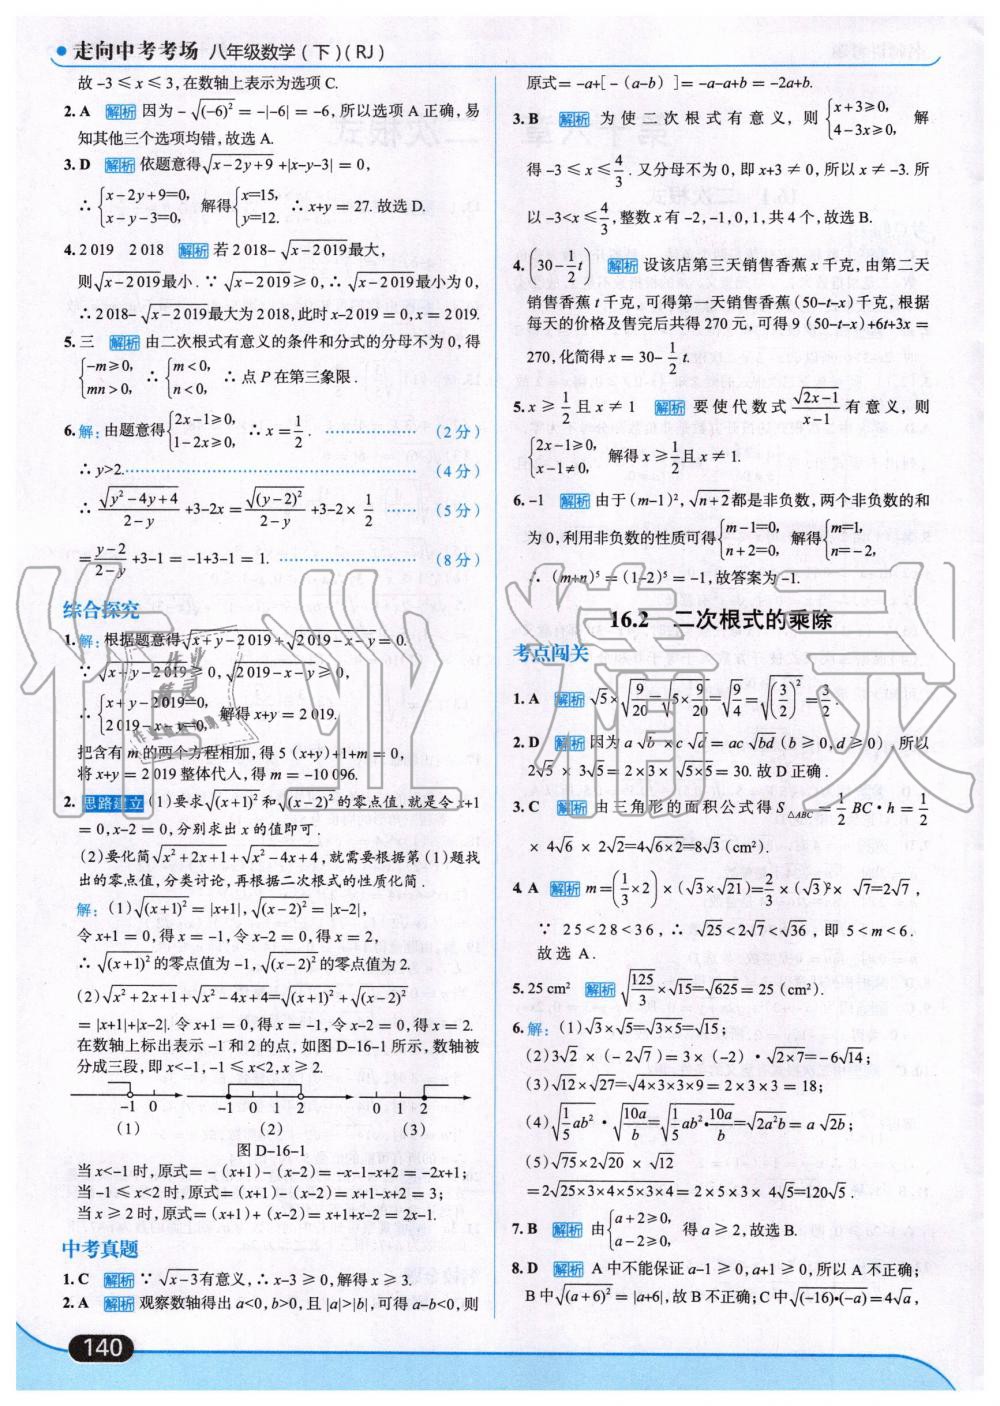 走向中考考场 八年级数学(下)(RJ)
故 -3≤x≤3,在数轴上表示为选项 C.
2. A 解析 因为 -√(-6)² = -|-6| = -6,所以选项 A 正确,易
知其他三个选项均错,故选 A.
3. D 解析 依题意得√x-2y+9 +|x-y-3| = 0,
∴ {x-2y+9=0, x-y-3=0, 解得{x=15, y=12. ∴x+y = 27. 故选 D.
4. 2 019 2 018 解析 若 2 018-√x-2 019最大,
则√x-2 019最小. ∵√x-2 019≥0,∴√x-2 019最小为 0,
∴2 018-√x-2 019最大为 2 018,此时 x-2 019 = 0,x = 2 019.
5. 三 解析 由二次根式有意义的条件和分式的分母不为 0,得
{-m≥0, mn>0, ∴ {m<0, n<0, ∴点 P 在第三象限.
6. 解:由题意得{2x-1≥0, 1-2x≥0, ∴x = 1/2. (2 分)
∴y>2. (4 分)
∴ √y²-4y+4/2-y +3-2x = √(y-2)²/2-y +3-2× 1/2 (5 分)
= y-2/2-y +3-1 = -1+3-1 = 1. (8 分)
综合探究
1. 解:根据题意得√x+y-2 019+√2 019-x-y = 0.
∵√x+y-2 019≥0,√2 019-x-y≥0,
∴ {x+y-2 019=0, 2 019-x-y=0, 解得 x+y = 2 019.
把含有 m 的两个方程相加,得 5(x+y)+1+m = 0,
将 x+y = 2 019 整体代入,得 m = -10 096.
2. 思路建立 (1)要求√(x+1)² 和√(x-2)² 的零点值,就是令 x+1
= 0,x-2 = 0,分别求出 x 的值即可.
(2)要化简√x²+2x+1+√x²-4x+4,就需要根据第(1)题找
出的零点值,分类讨论,再根据二次根式的性质化简.
解:(1)√(x+1)² = |x+1|,√(x-2)² = |x-2|,
令 x+1 = 0,得 x = -1,令 x-2 = 0,得 x = 2,
∴√(x+1)² 的零点值为 -1,√(x-2)² 的零点值为 2.
(2)√x²+2x+1+√x²-4x+4=√(x+1)²+√(x-2)²
= |x+1|+|x-2|. 令 x+1 = 0,得 x = -1,令 x-2 = 0,得 x = 2.
在数轴上标出表示 -1 和 2 的点,如图 D-16-1 所示,数轴被
分成三段,即 x<-1,-1≤x<2,x≥2.
-1 0 -1 0 1 2 0 1 2
(1) (2) (3)
图 D-16-1
当 x<-1 时,原式= -(x+1)-(x-2)= -x-1-x+2 = -2x+1;
当 -1≤x<2 时,原式=(x+1)-(x-2)= x+1-x+2 = 3;
当 x≥2 时,原式=(x+1)+(x-2)= x+1+x-2 = 2x-1.
中考真题
1. C 解析 ∵√x-3有意义,∴x-3≥0,解得 x≥3.
2. A 解析 观察数轴得出 a<0,b>0,且 |a|>|b|,可得 a-b<0,则
原式= -a+[-(a-b)]= -a-a+b = -2a+b.
3. B 解析 为使二次根式有意义,则{x+3≥0, 4-3x≥0, 解
得 -3≤x≤4/3. 又分母不为 0,即 x+3≠0,所以 x≠-3. 所
以 -3<x≤4/3,整数 x 有 -2,-1,0,1,共 4 个,故选 B.
4. (30-1/2t) 解析 设该店第三天销售香蕉 x 千克,由第二天
销售香蕉 t 千克,可得第一天销售香蕉(50-t-x)千克,根据
每天的价格及售完后共得 270 元,可得 9(50-t-x)+6t+3x =
270,化简得 x = 30-1/2t.
5. x≥1/2且 x≠1 解析 要使代数式√2x-1/x-1有意义,则
{2x-1≥0, x-1≠0, 解得 x≥1/2且 x≠1.
6. -1 解析 由于(m-1)²,√n+2都是非负数,两个非负数的和
为 0,利用非负数的性质可得{m-1=0, n+2=0, 解得{m=1, n=-2,
∴(m+n)⁵ =(1-2)⁵ = -1,故答案为 -1.
16.2 二次根式的乘除
考点闯关
1. A 解析 √5×√9/20=√5×9/20=√9/4=√(3/2)²=3/2.
2. D 解析 因为 a√b×c√d = ac√bd(b≥0,d≥0),所以
2√5×3√5 = 2×3×√5×5 = 30. 故 D 正确.
3. C 解析 由三角形的面积公式得 S△ABC = 1/2BC·h = 1/2
×4√6×2√2=4√6×2=8√3(cm²).
4. A 解析 m=(1/3×2)×(√3×√21)=2/3×(√3)²×√7=2√7,
∵25<28<36,∴√25<2√7<√36,即 5<m<6.
故选 A.
5. 25 cm² 解析 √125/3×√15=√625= 25(cm²).
6. 解:(1)√3×√5=√3×5=√15;
(2)3√2×(-2√7)= 3×(-2)·√2×7=-6√14;
(3)√12×√27=√4×3×3×9 = 2×3×3 = 18;
(4)√1/5ab²·√10a/b=√1/5ab²·10a/b=√2a²b= a√2b;
(5)√75×2√20×√12
=2√25×3×4×5×3×4= 2×5×3×4√5=120√5.
7. B 解析 由{a+2≥0, a-2≥0, 得 a≥2,故选 B.
8. D 解析 A 中不能保证 a-1≥0,a+1≥0,所以 A 不正确;
B 中√(a+6)² = |a+6|,故 B 不正确;C 中√(-16)·(-a)=4√a,
140
作业精灵